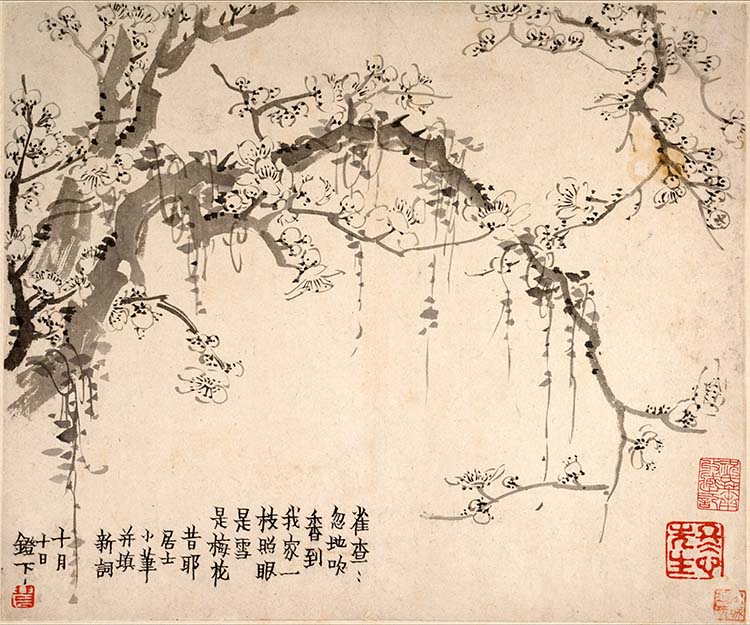 雀查::
忽地吹
香到
我家一
枝照眼
是雪
是梅花
昔耶
居士
小筆
并填
新詞
十月
十日
鐙下
冬心
先生